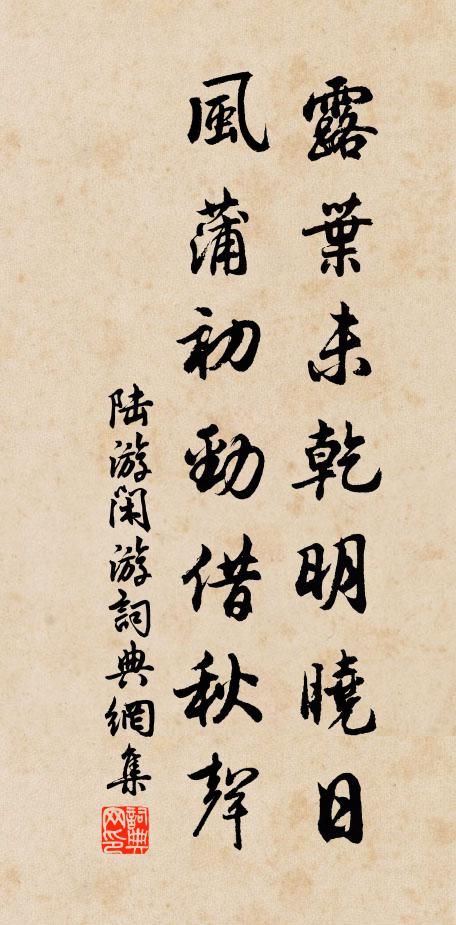 露葉未乾明曉日
風蒲初勁借秋聲
陆游闲游詞典網集
詞典网印